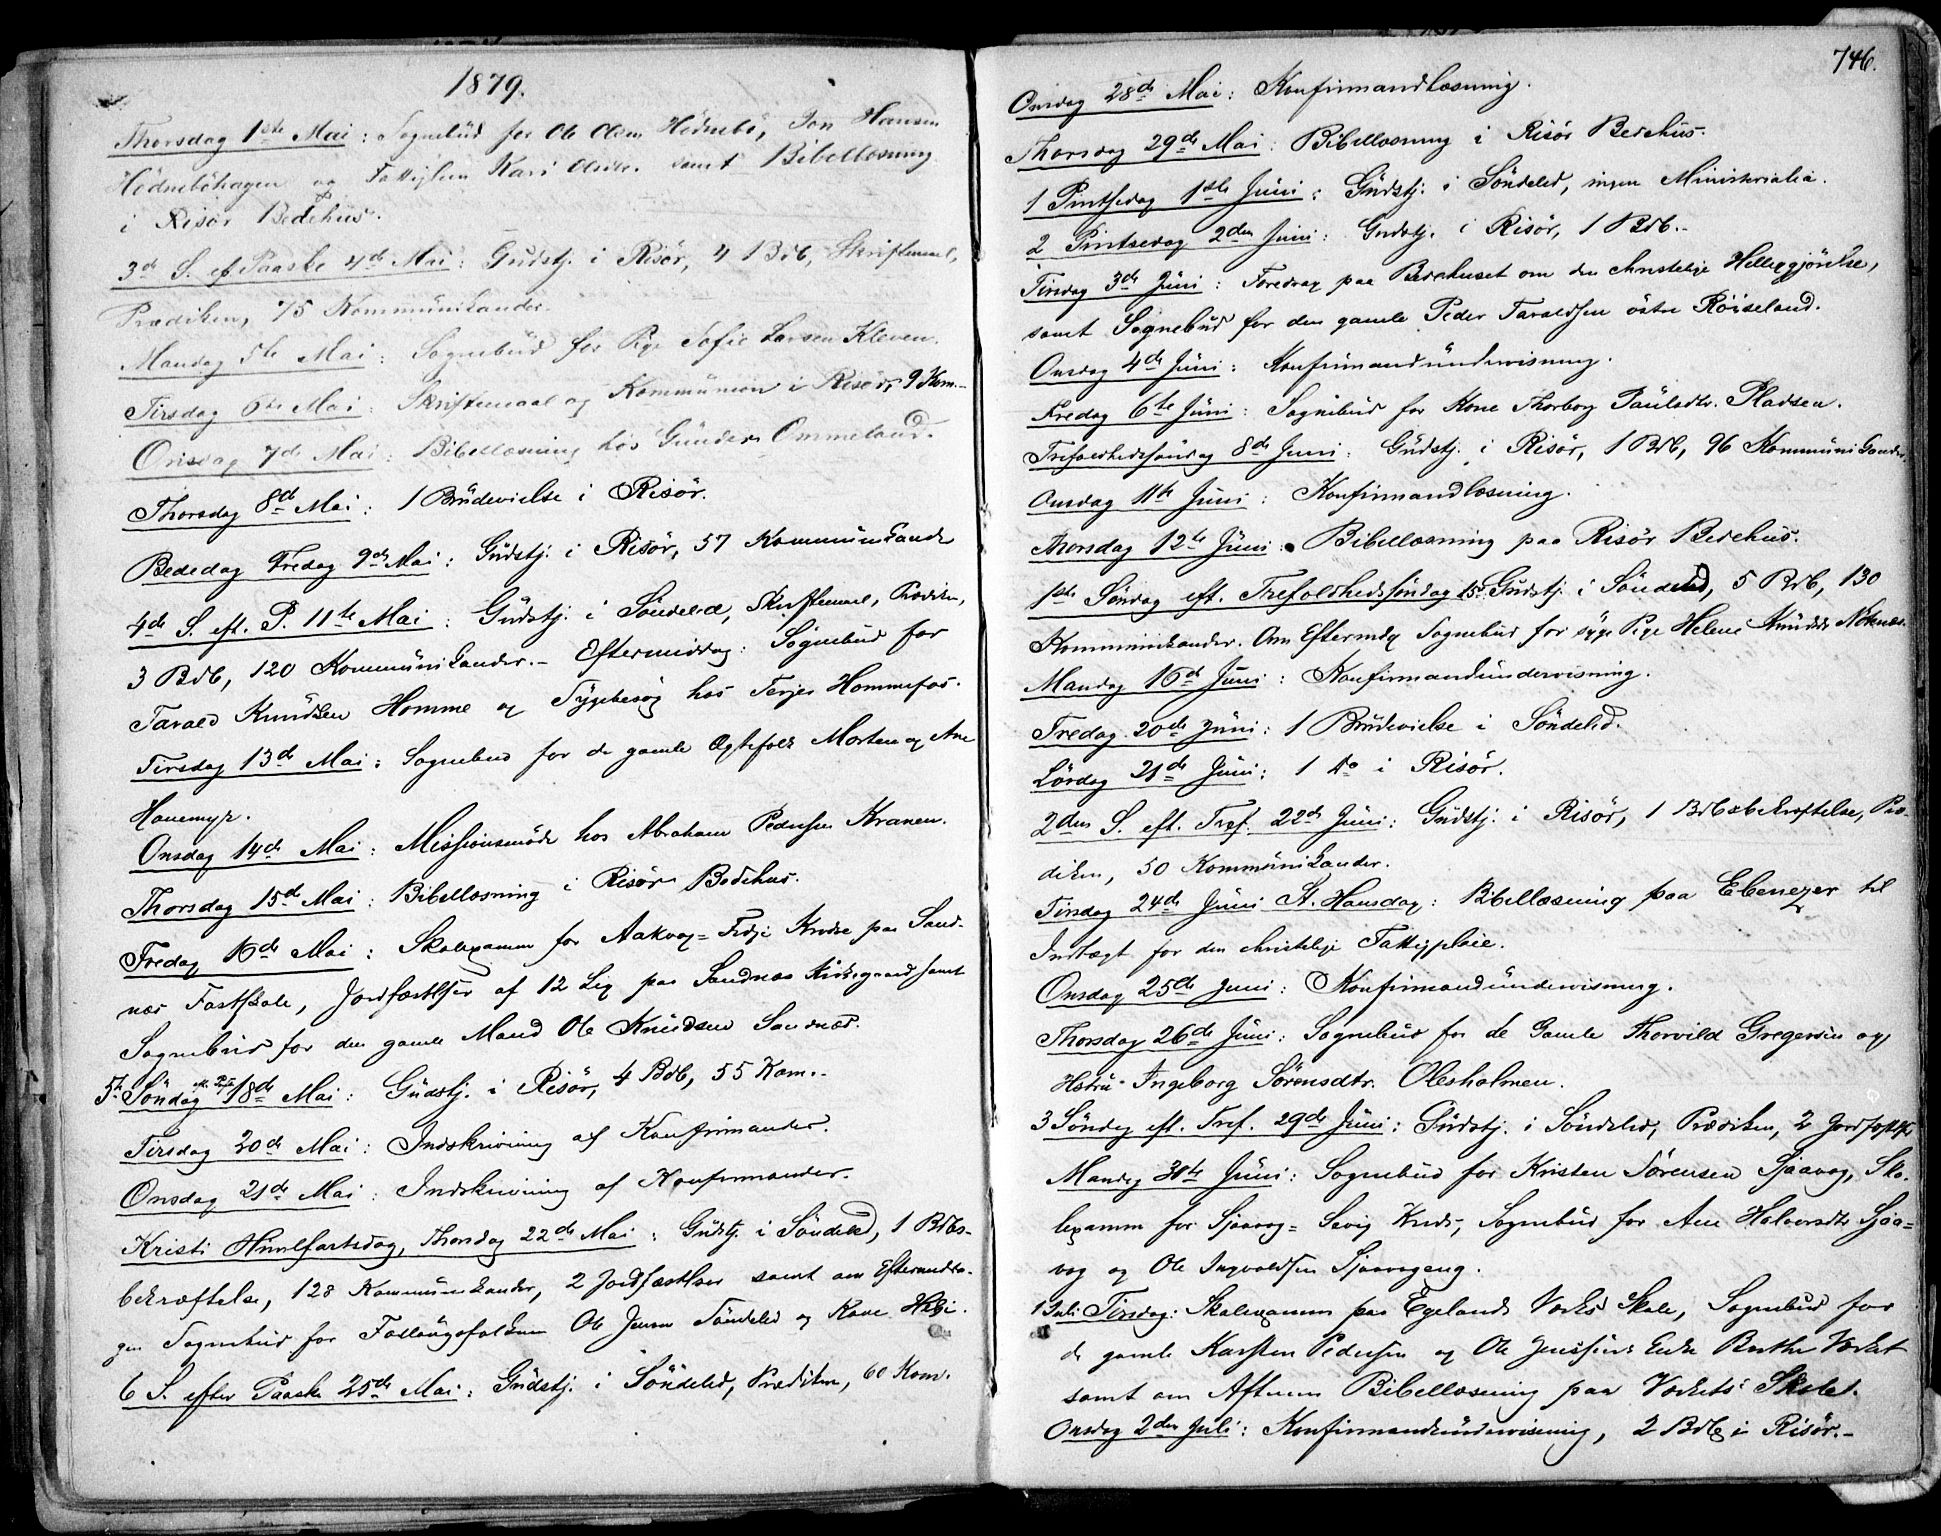 1879.
Thorsdag 1ste Mai: Sognebud for Ole Olsen Hødnebø, Jon Hansen
Hødnebøhagen og Kari Olsdtr. samt Bibellæsning
i Risør Bedehus.
3d S. ef Paaske 4de Mai: Gudstj. i Risør, 4 BdB, Skriftemaal,
Prædiken, 75 Kommunikander.
Mandag 5te Mai: Sognebud for Pige Sofie Larsen Kleven.
Tirsdag 6te Mai: Skriftemaal og Kommunion i Risør, 9 Kom.-
Onsdag 7de Mai: Bibellæsning hos Gunder Ommeland.
Thorsdag 8de Mai: 1 Brudevielse i Risør.
Bededag Fredag 9de Mai: Gudstj. i Risør, 57 Kommunikande
4de S. eft. P. 11te Mai: Gudstj. i Søndeled, Skriftemaal, Prædiken,
3 BdB, 120 Kommunikander.- Eftermiddag: Sognebud for
Tarald Knudsen Homme og Sygebesøg hos Terjer Hommefos.
Tirsdag 13de Mai: Sognebud for de gamle Ægtefolk Morten og Ane
Hanemyr.
Onsdag 14de Mai: Missionsmøde hos Abraham Pedersen Kranen.
Thorsdag 15de Mai: Bibellæsning i Risør Bedehus.
Fredag 16de Mai: Skoleexamen for Aakvag= Frøje Kreds paa Sand-
næs Fastskole, Jordfæstelser af 12 Lig paa Sandnæs Kirkegaard samt
Sognebud for den gamle Mand Ole Knudsen Sandnæs.
5te Søndag eft. P. 18de Mai: Gudstj. i Risør, 4 BdB, 55 Kom.-
Tirsdag 20de Mai: Indskrivning af Konfirmander.
Onsdag 21de Mai: Indskrivning af Konfirmander.
Kristi Himlfartsdag, Thorsdag 22de Mai: Gudstj. i Søndeled, 1 BdBs-
bekræftelse, 128 Kommunikander, 2 Jordfæstelser samt om Eftermidda-
gen Sognebud for Ole Jensen Søndeled og Kone
6 S. efter Paaske 25de Mai: Gudstj. i Søndeled, Prædiken, 60 Kom.
746.
Onsdag 28de Mai: Konfirmandlæsning.
Thorsdag 29de Mai: Bibellæsning i Risør Bedehus.
1 Pintsedag 1ste Juni: Gudstj. i Søndeled, ingen Ministerialia.
2 Pintsedag 2den Juni: Gudstj. i Risør, 1 BdB.-
Tirsdag 3de Juni: Foredrag paa Bedehuset om den christelige Helliggjørelse,
samt Sognebud for den gamle Peder Taraldsen østre Røiseland.
Onsdag 4de Juni: Konfirmandundervisning.
Fredag 6te Juni: Sognebud for Kone Thorborg Paulsdtr. Pladsen.
Trefoldhedssøndag 8de Juni: Gudstj. i Risør, 1 BdB, 96 Kommunikander.
Onsdag 11te Juni: Konfirmandlæsning.
Thorsdag 12te Juni: Bibellæsning paa Risør Bedehus.
1ste Søndag eft. Trefoldhedssøndag 15de Gudstj. i Søndeled, 5 BdB, 130
Kommunikander. Om Eftermdg Sognebud for syge Pige Helene Knudsdtr
Mandag 16de Juni: Konfirmandundervisning.
Fredag 20de Juni: 1 Brudevielse i Søndeled.
Lørdag 21de Juni: 1 do i Risør.
2den S. eft. Tref. 22de Juni: Gudstj. i Risør, 1 BdBsbekræftelse, Præ-
diken, 50 Kommunikander.
Tirsdag 24de Juni St. Hansdag: Bibellæsning paa Ebenezer til
Indtægt for den christelige Fattigpleie.
Onsdag 25de Juni: Konfirmandundervisning.
Thorsdag 26de Juni: Sognebud for de Gamle Thorvild Gregersen og
Hstru Ingeborg Sørensdtr. Olesholmen.
3 Søndag eft. Tref. 29de Juni: Gudstj. i Søndeled, Prædiken, 2 Jordfæstelser
Mandag 30te Juni: Sognebud for Kristen Sørensen Sjaavag, Sko-
lexamen for Sjaavag= Sevig Kreds, Sognebud for Ane Halvorsdtr Sjaa=
vag og Ole Ingvaldsen Sjaavageng.
1 Juli Tirsdag: Skolexamen paa Egelands Værks Skole, Sognebud for
de gamle Karsten Pedersen og Ole Jensens Enke Berthe Værket
samt om Aftenen Bibellæsning paa Værkets Skole.
Onsdag 2den Juli: Konfirmandundervisning, 2 BdB i Risør.-